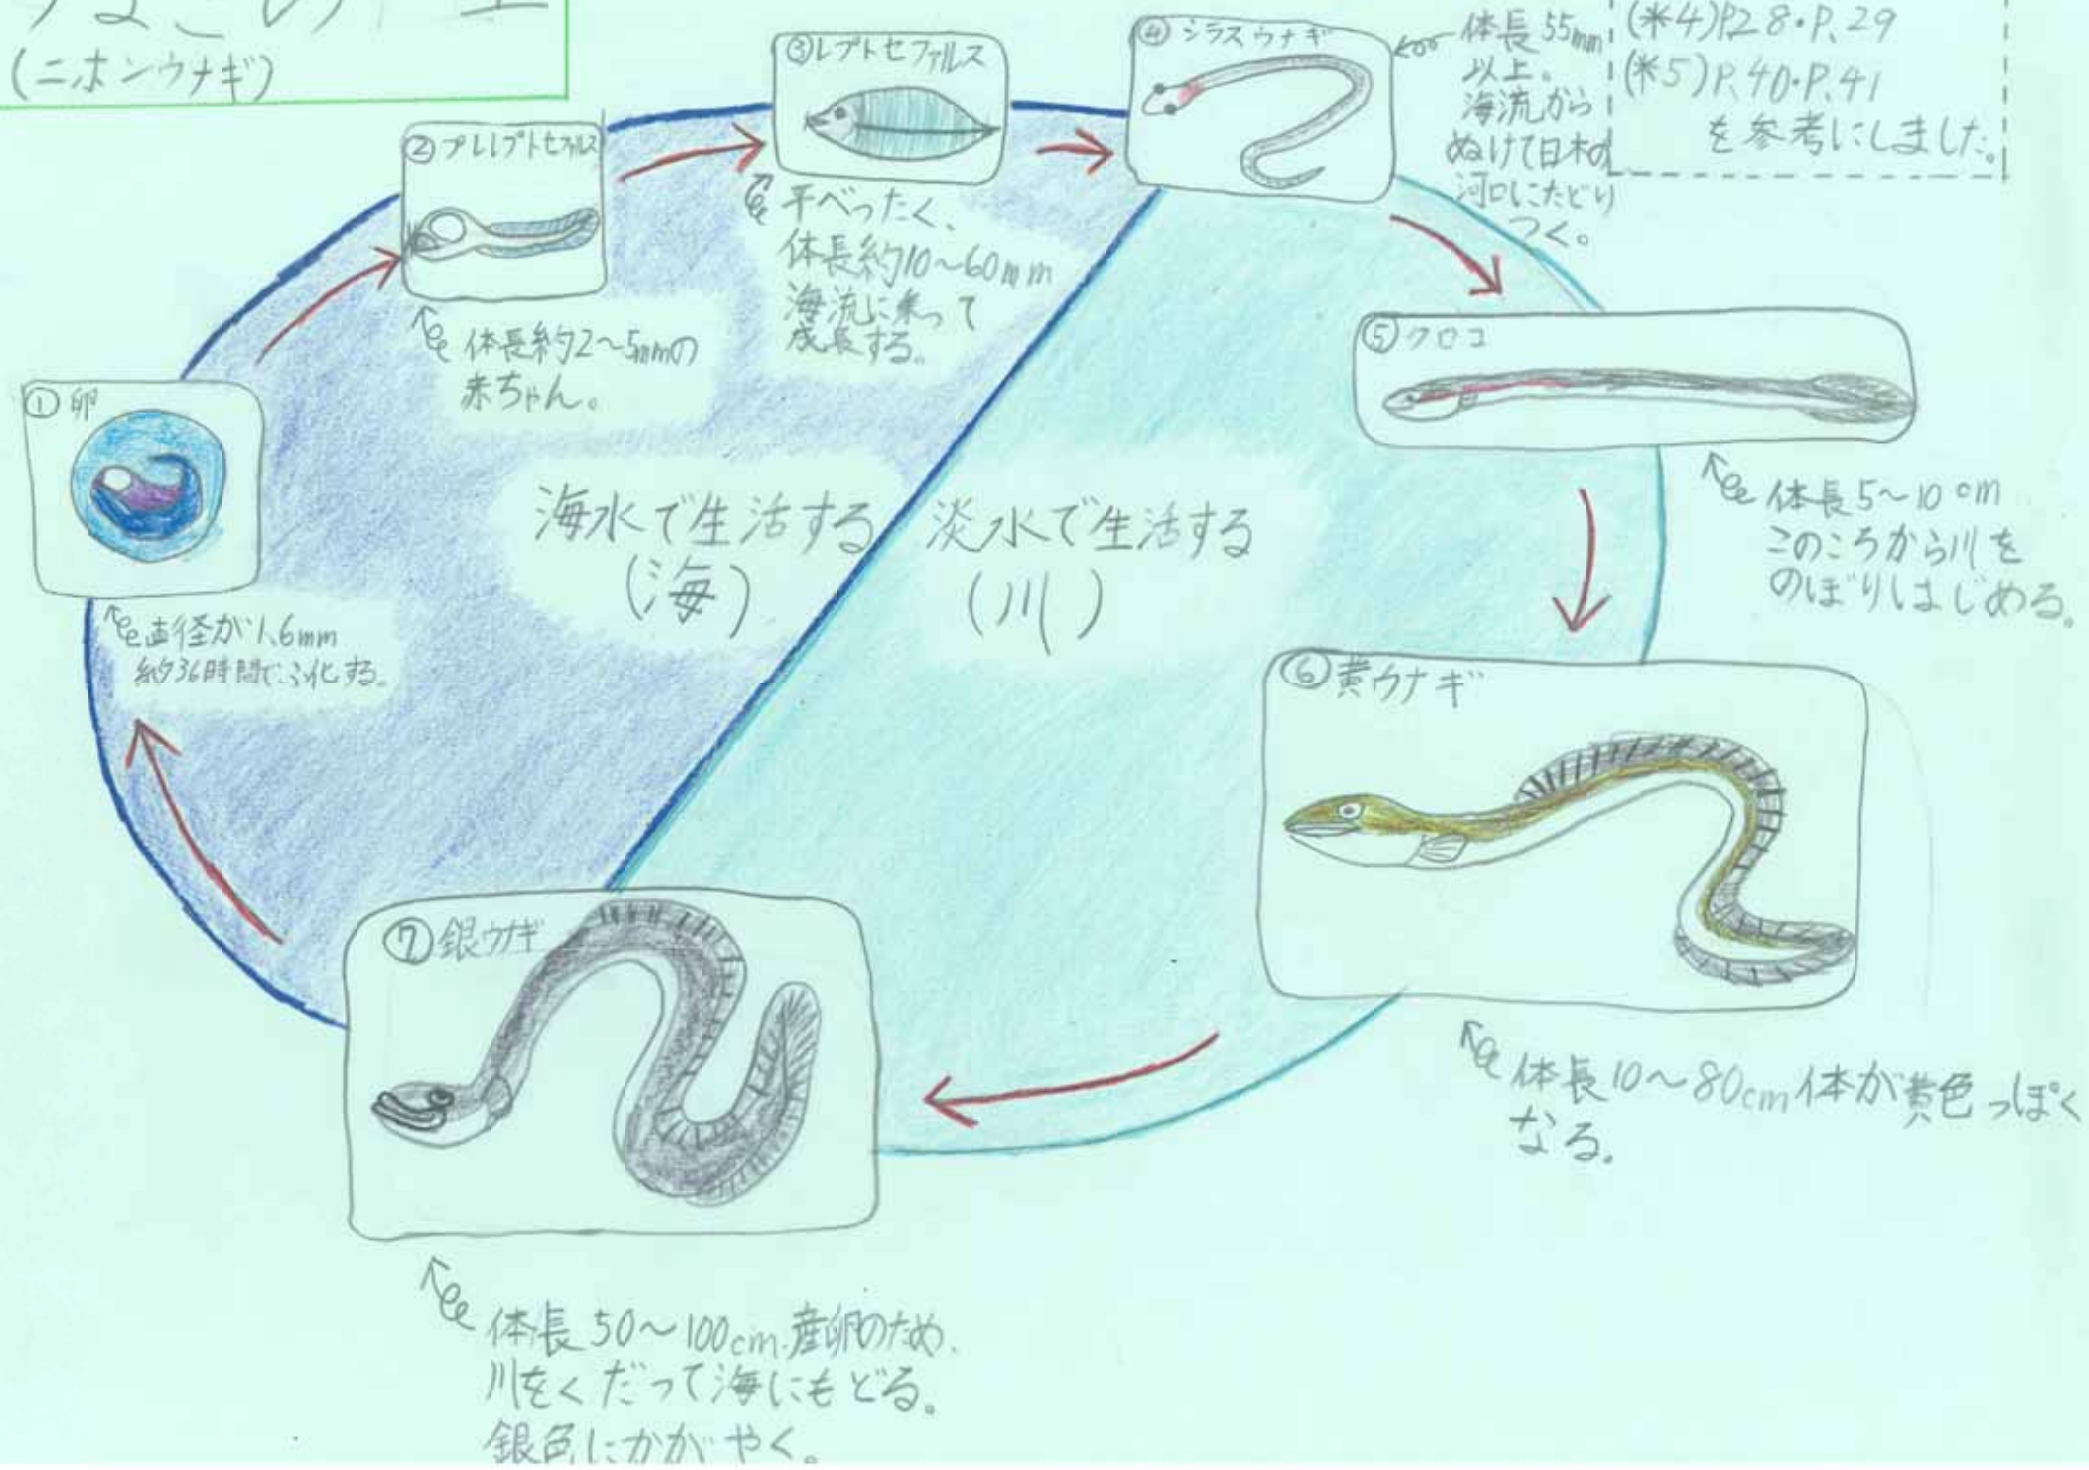 (ニホンウナギ)
(※4)P.28・P.29
(※5)P.40・P.41
を参考にしました。
①卵
直径が1.6mm
約36時間でふ化する。
②プレレプトセファルス
体長約2～5mmの
赤ちゃん。
③レプトセファルス
平べったく、
体長約10～60mm
海流に乗って
成長する。
④シラスウナギ
体長55mm
以上。
海流から
ぬけて日本の
河口にたどり
つく。
⑤クロコ
体長5～10cm
このころから川を
のぼりはじめる。
⑥黄ウナギ
体長10～80cm体が黄色っぽく
なる。
⑦銀ウナギ
体長50～100cm.産卵のため、
川をくだって海にもどる。
銀色にかがやく。
海水で生活する
(海)
淡水で生活する
(川)